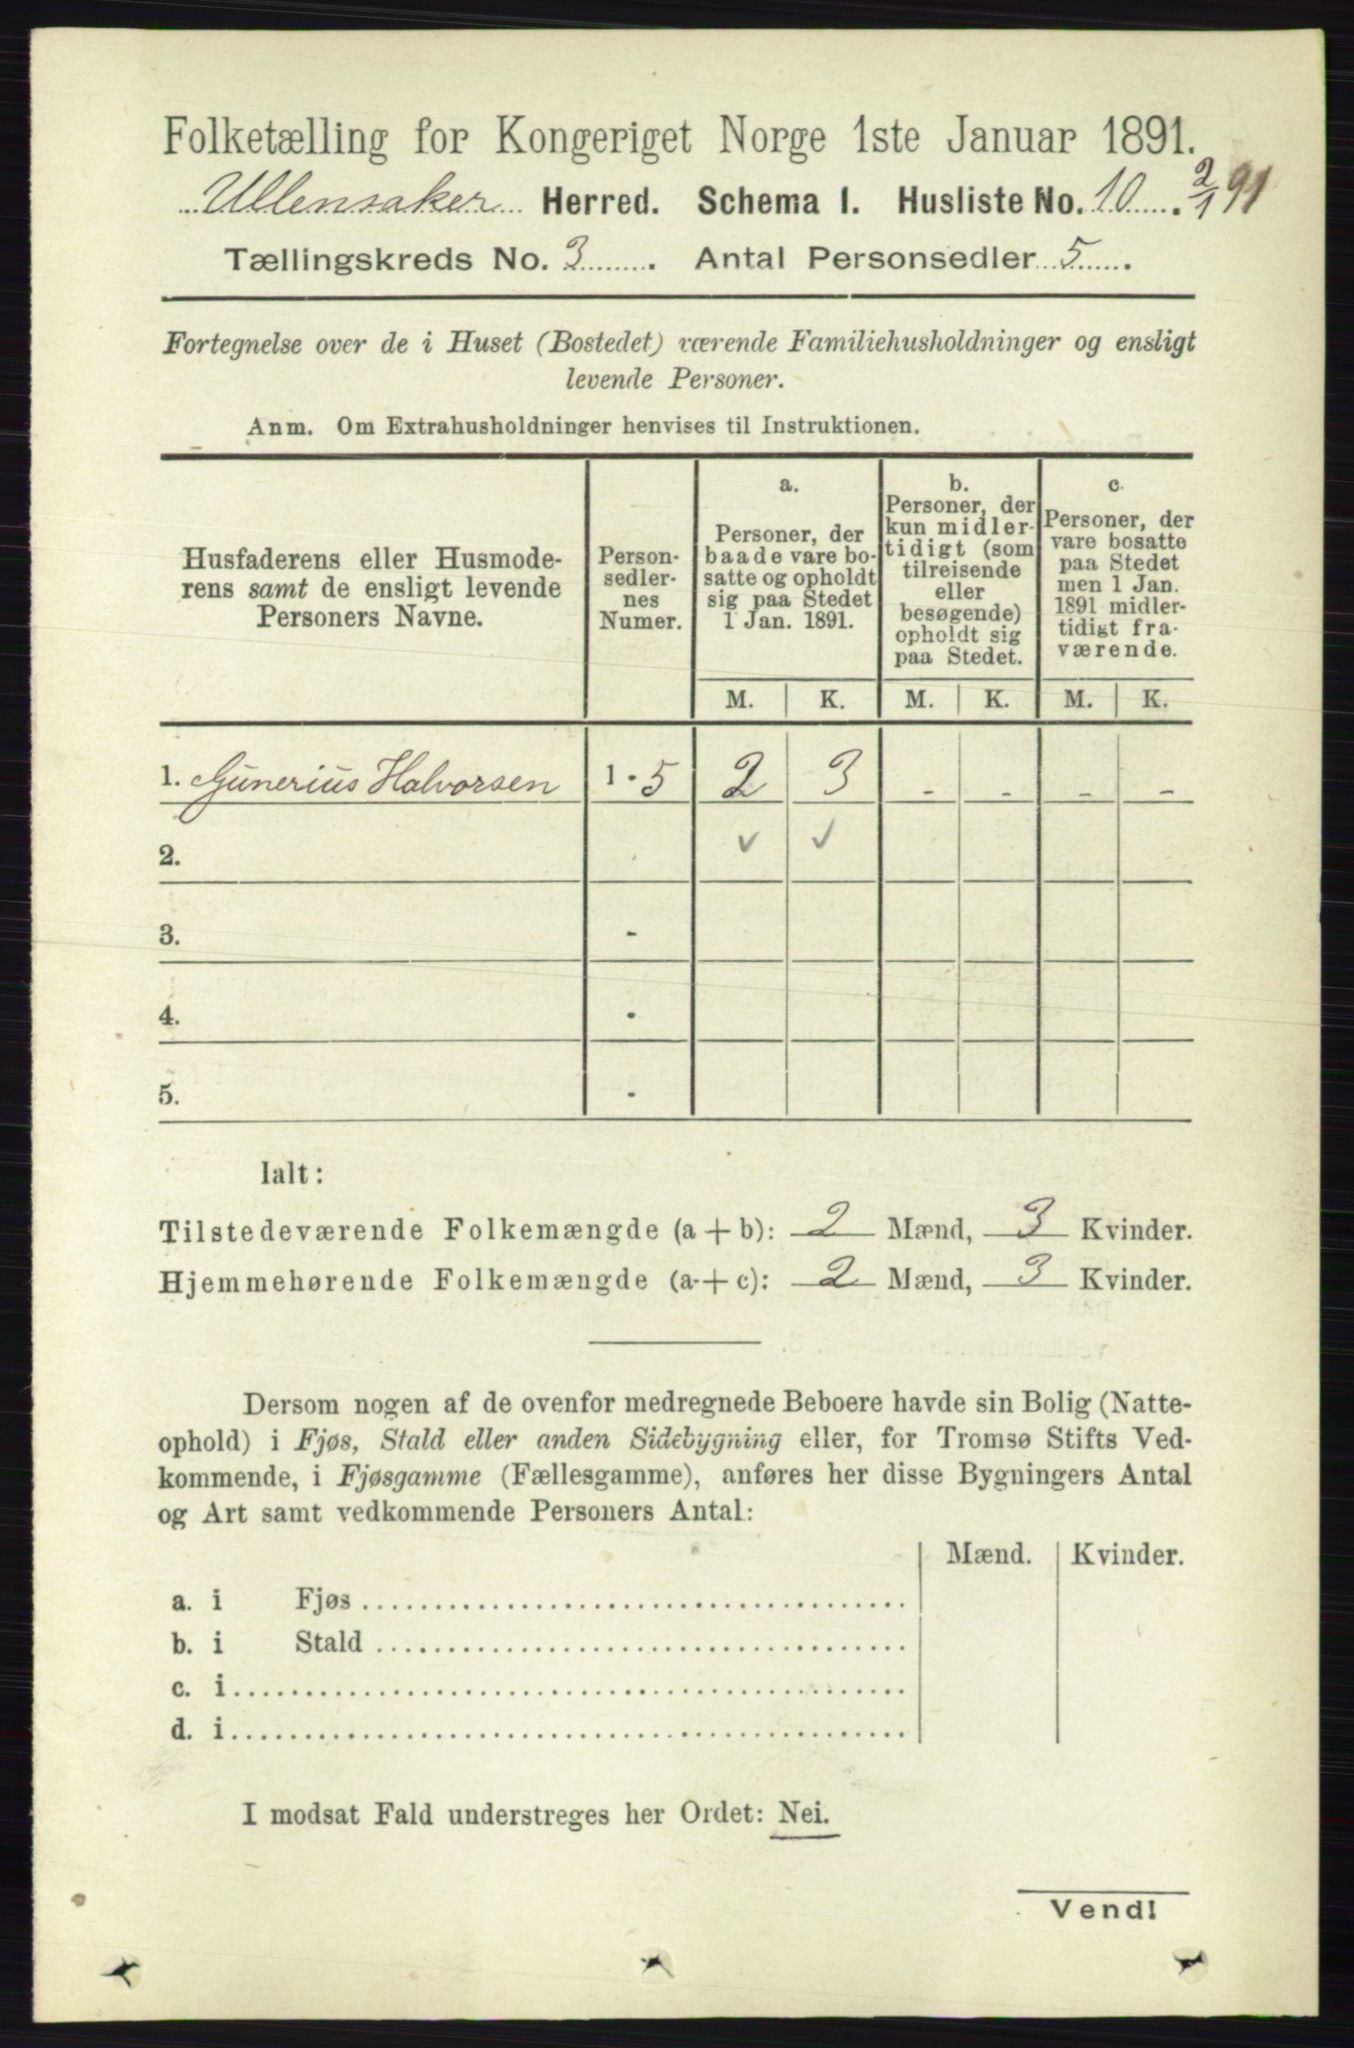 Folketælling for Kongeriget Norge 1ste Januar 1891.
Ullensaker Herred. Schema I. Husliste No. 10. 2/1 91
Tællingskreds No. 3. Antal Personsedler 5.
Fortegnelse over de i Huset (Bostedet) værende Familiehusholdninger og ensligt
levende Personer.
Anm. Om Extrahusholdninger henvises til Instruktionen.
Husfaderens eller Husmode-
rens samt de ensligt levende
Personers Navne.
Person-
sedler-
nes
Numer.
a.
Personer, der
baade vare bo-
satte og opholdt
sig paa Stedet
1 Jan. 1891.
b.
Personer, der
kun midler-
tidigt (som
tilreisende
eller
besøgende)
opholdt sig
paa Stedet.
c.
Personer, der
vare bosatte
paa Stedet
men 1 Jan.
1891 midler-
tidigt fra-
værende.
M. K. M. K. M. K.
1. Gunerius Halvorsen 1 - 5 2 3 - - - -
2. ✓ ✓
3. -
4. -
5. -
Ialt:
Tilstedeværende Folkemængde (a + b): 2 Mænd, 3 Kvinder.
Hjemmehørende Folkemængde (a + c): 2 Mænd, 3 Kvinder.
Dersom nogen af de ovenfor medregnede Beboere havde sin Bolig (Natte-
ophold) i Fjøs, Stald eller anden Sidebygning eller, for Tromsø Stifts Ved-
kommende, i Fjøsgamme (Fællesgamme), anføres her disse Bygningers Antal
og Art samt vedkommende Personers Antal:
Mænd. Kvinder.
a. i Fjøs
b. i Stald
c. i
d. i
I modsat Fald understreges her Ordet: Nei.
Vend!